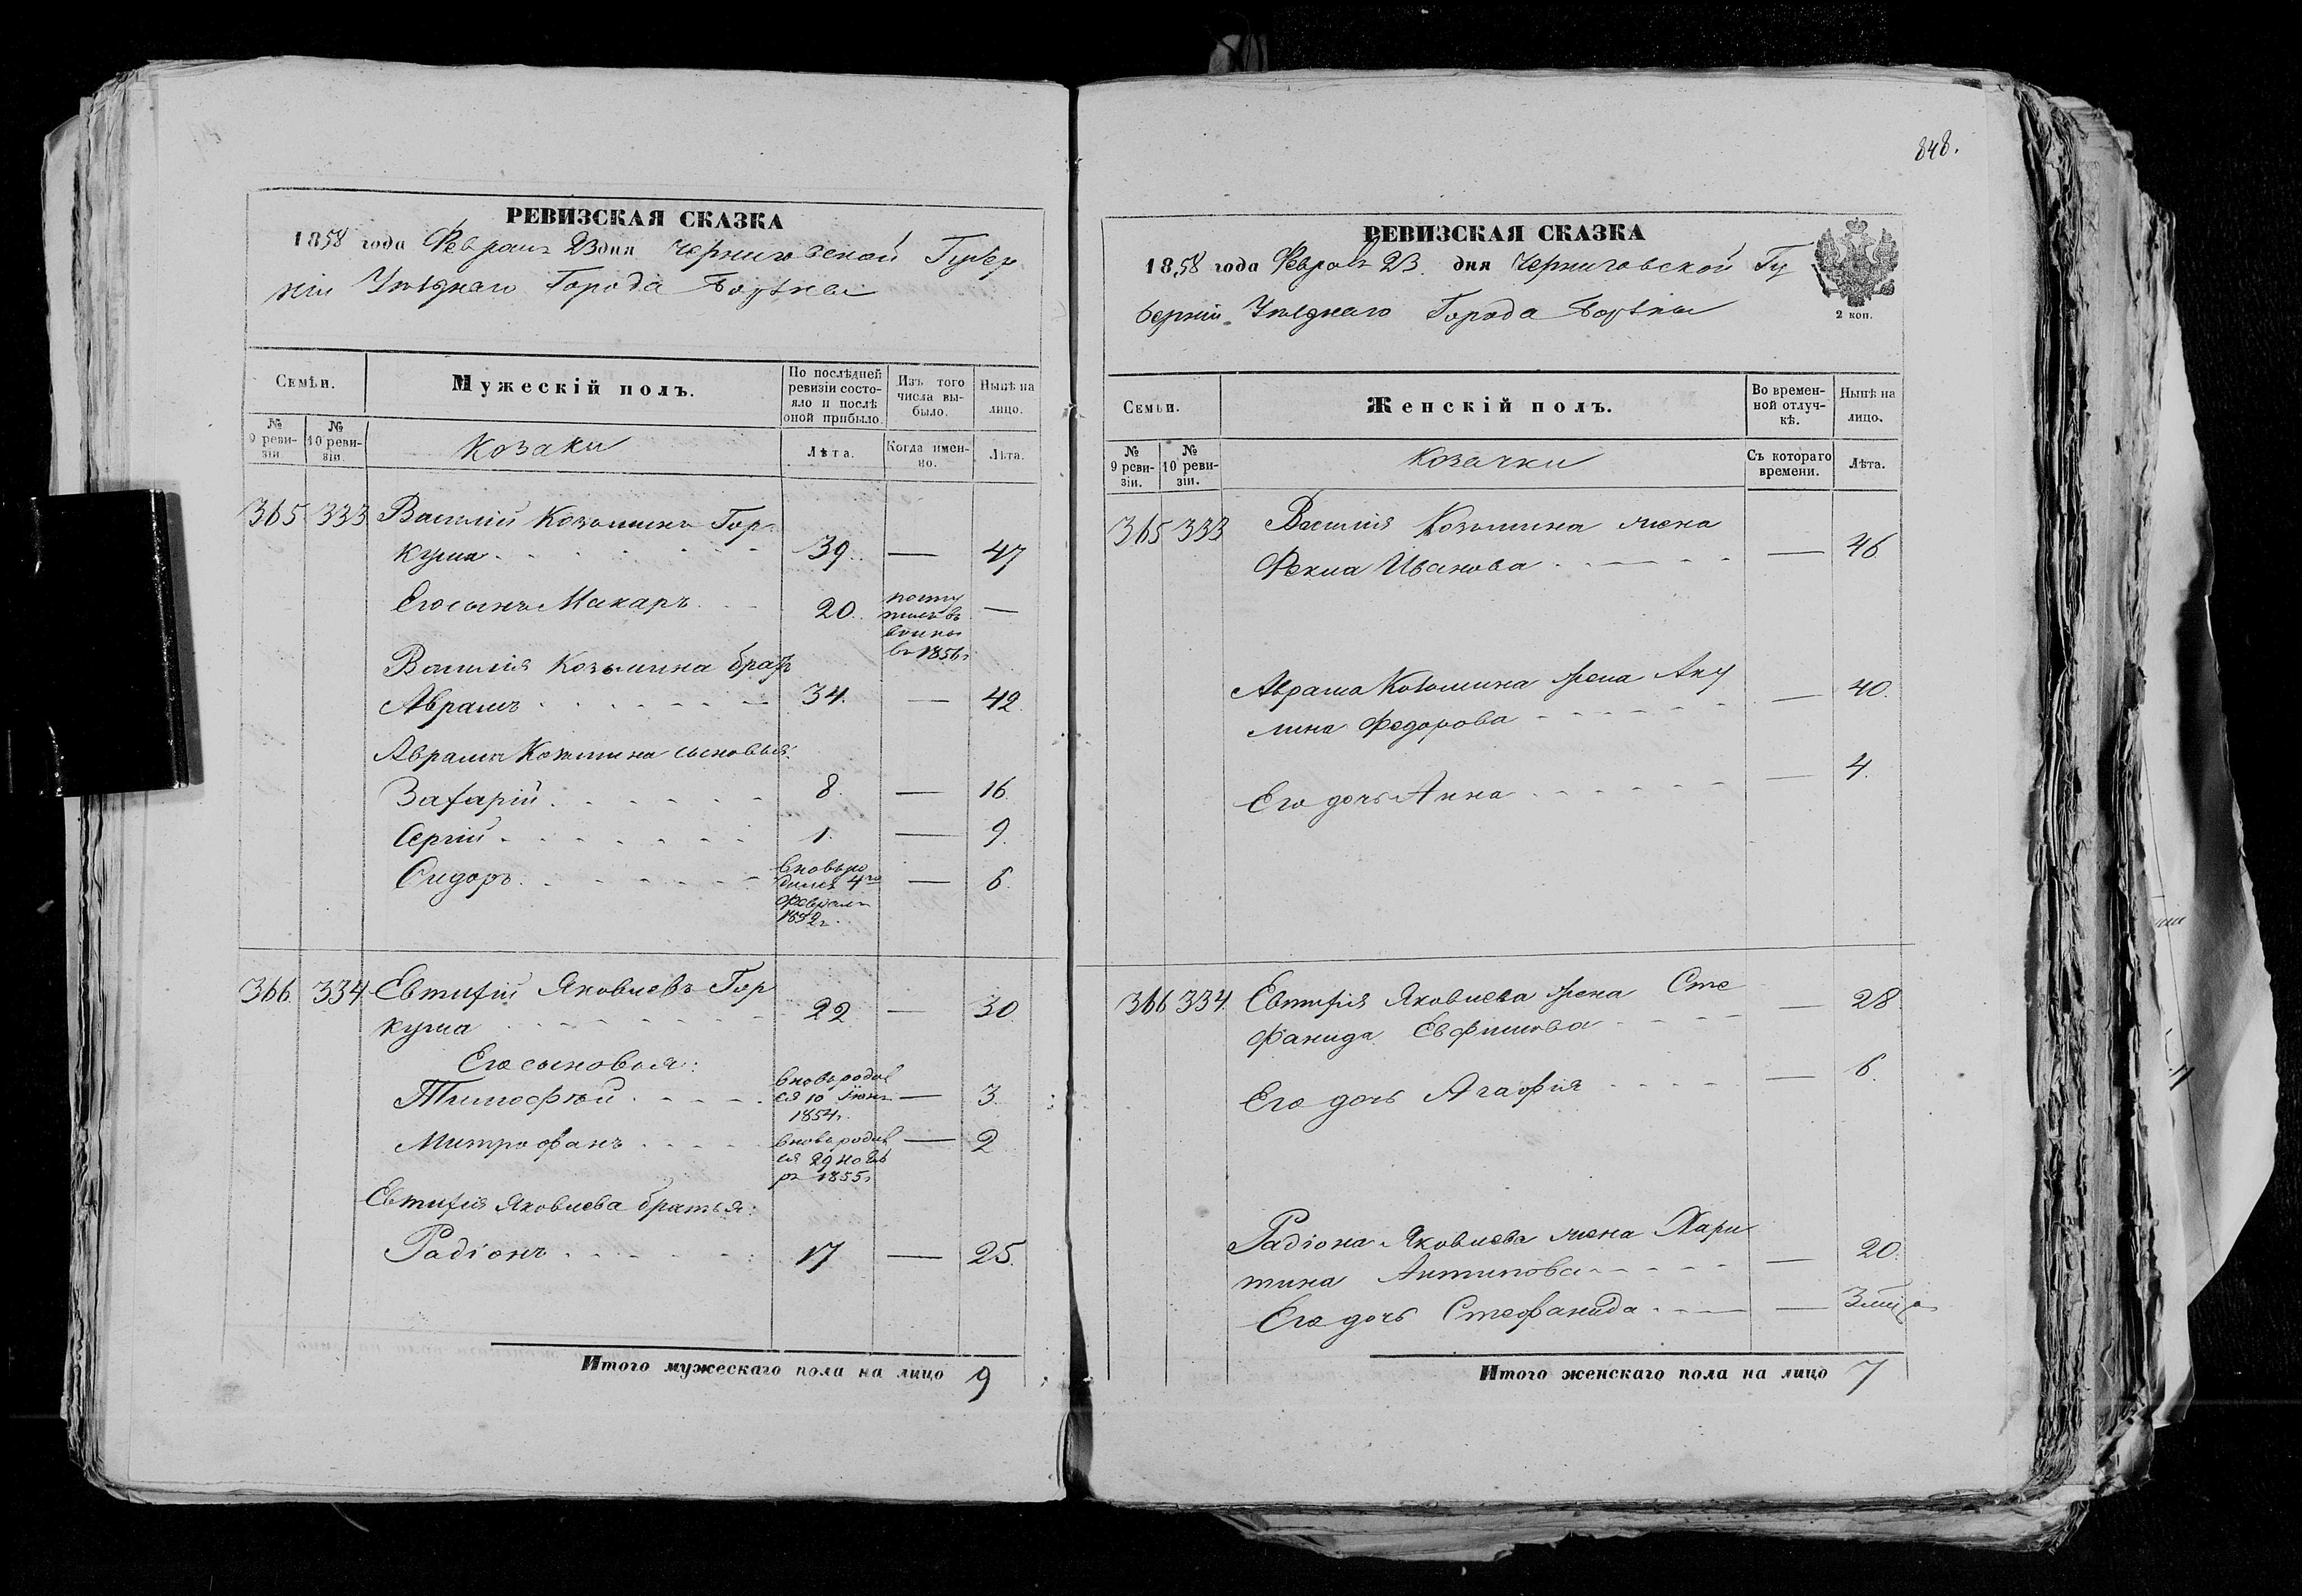 РЕВИЗСКАЯ СКАЗКА
1858 года Февраля 23 дня Черниговской Губер
ніи Уѣзднаго Города Борзны
Семьи.
Мужескій полъ.
По послѣдней
ревизіи состо-
яло и послѣ
оной прибыло.
Изъ того
числа вы-
было.
Нынѣ на
лицо.
№
9 реви-
зіи.
№
10 реви-
зіи.
Козаки
Лѣта.
Когда имен-
но.
Лѣта.
365 333 Василій Козьминъ Гор
куша 39. — 47
Его сынъ Макаръ 20. посту
пилъ въ
воины
въ 1856г —
Василія Козьмина братъ
Аврамъ 34. — 42.
Аврама Козьмина сыновья:
Захарій 8. — 16.
Сергій 1. — 9.
Сидоръ вновь ро
дился 4го
Февраля
1852г. — 6.
366. 334. Евтихій Яковлевъ Гор
куша 22 — 30.
Его сыновья:
Тимофѣй вновь родил
ся 10 Іюня
1854г. — 3.
Митрофанъ вновь родил
ся 29 нояб
ря 1855г — 2
Евтихія Яковлева братья:
Радіонъ 17 — 25.
Итого мужескаго пола на лицо 9
848.
РЕВИЗСКАЯ СКАЗКА
1858 года Февраля 23. дня Черниговской Гу
берніи Уѣзднаго Города Борзны
2 коп.
Семьи.
Женскій полъ.
Во времен-
ной отлуч-
кѣ.
Нынѣ на
лицо.
№
9 реви-
зіи.
№
10 реви-
зіи.
Козачки
Съ котораго
времени.
Лѣта.
365 333 Василія Козьмина жена
Фекла Иванова — 46
Аврама Козьмина жена Аку
лина Федорова — 40.
Его дочь Анна — 4.
366 334. Евтихія Яковлева жена Сте
фанида Евфимова — 28
Его дочь Агафія — 6.
Радіона Яковлева жена Хари
тина Антипова — 20.
Его дочь Стефанида — 3 міся
Итого женскаго пола на лицо 7